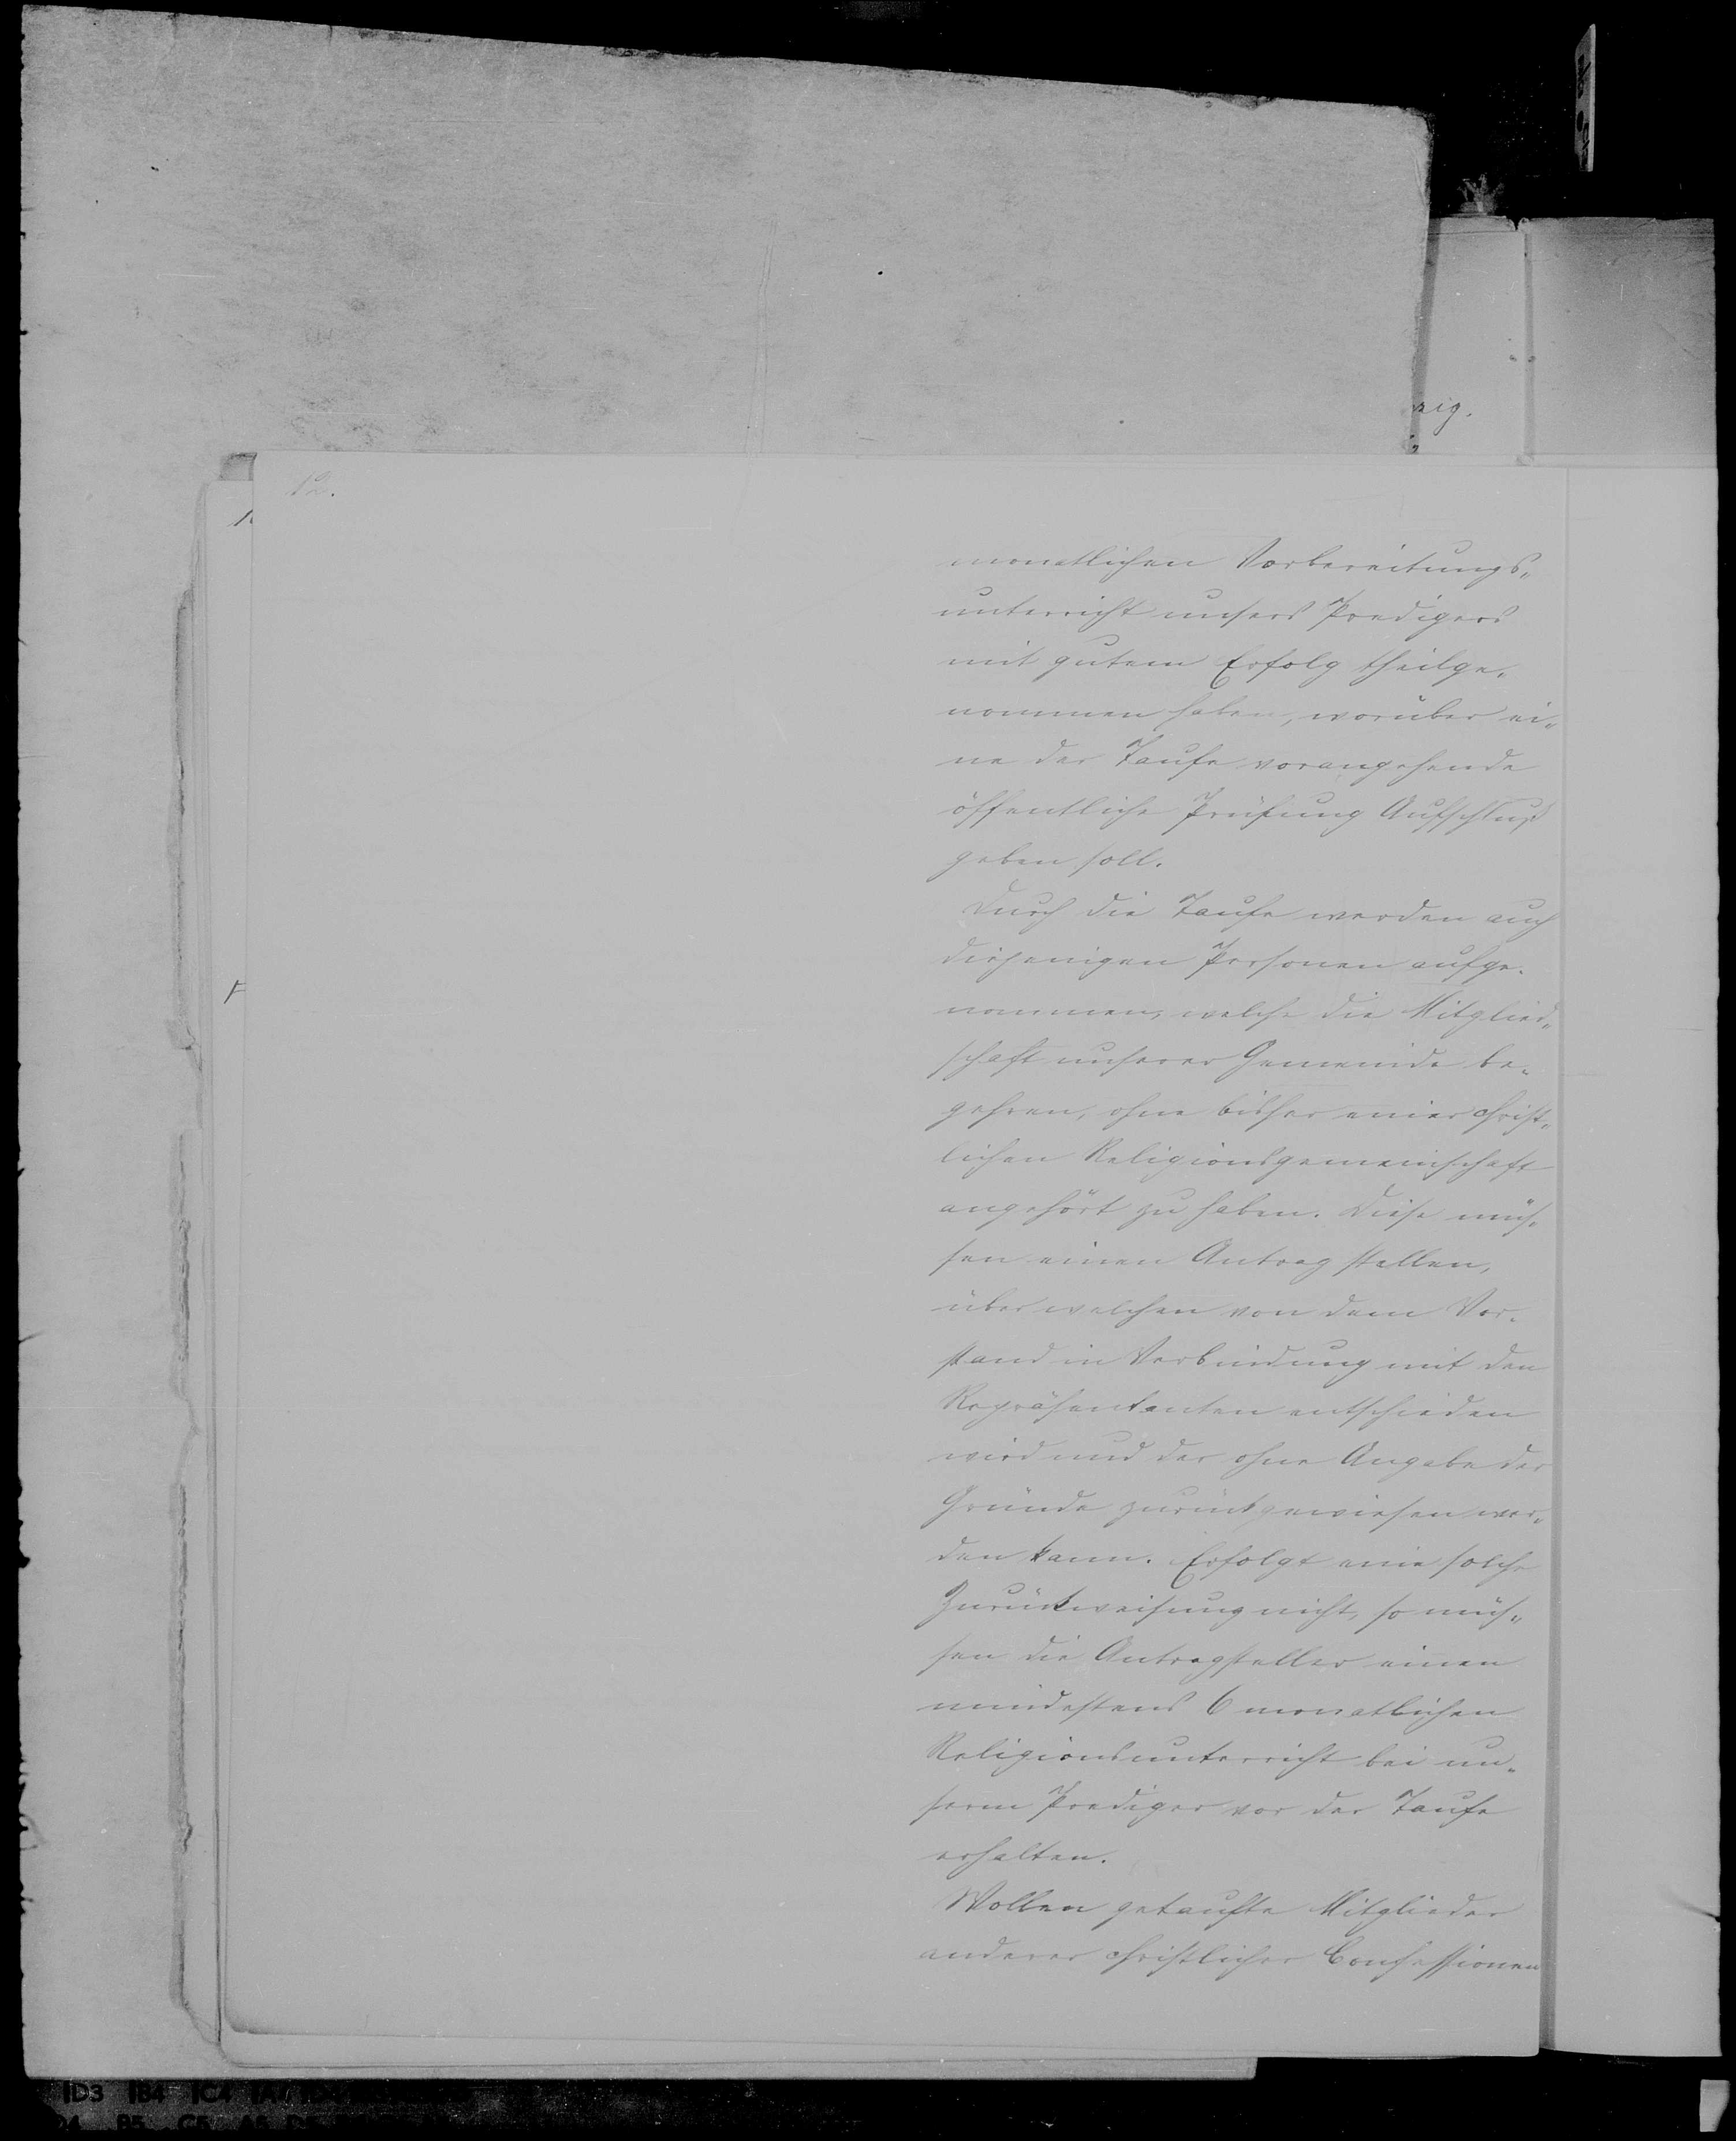 zig.
12.
monatlichen Vorbereitungs„
unterricht unsers Predigers
mit gutem Erfolg theilge„
nommen haben, worüber ei„
ne der Taufe vorangehende
öffentliche Prüfung Aufschluß
geben soll.
Durch die Taufe werden auch
diejenigen Personen aufge„
nommen, welche die Mitglied„
schaft unserer Gemeinde be„
gehren, ohne bisher einer christ„
lichen Religionsgemeinschaft
angehört zu haben. Diese müs„
sen einen Antrag stellen,
über welchen von dem Vor„
stand in Verbindung mit den
Repräsentanten entschieden
wird und der ohne Angabe der
Gründe zurückgewiesen wer„
den kann. Erfolgt eine solche
Zurückweisung nicht, so müs„
sen die Antragsteller einen
mindestens 6 monatlichen
Religionsunterricht bei un„
serm Prediger vor der Taufe
erhalten.
Wollen getaufte Mitglieder
anderer christlicher Confessionen